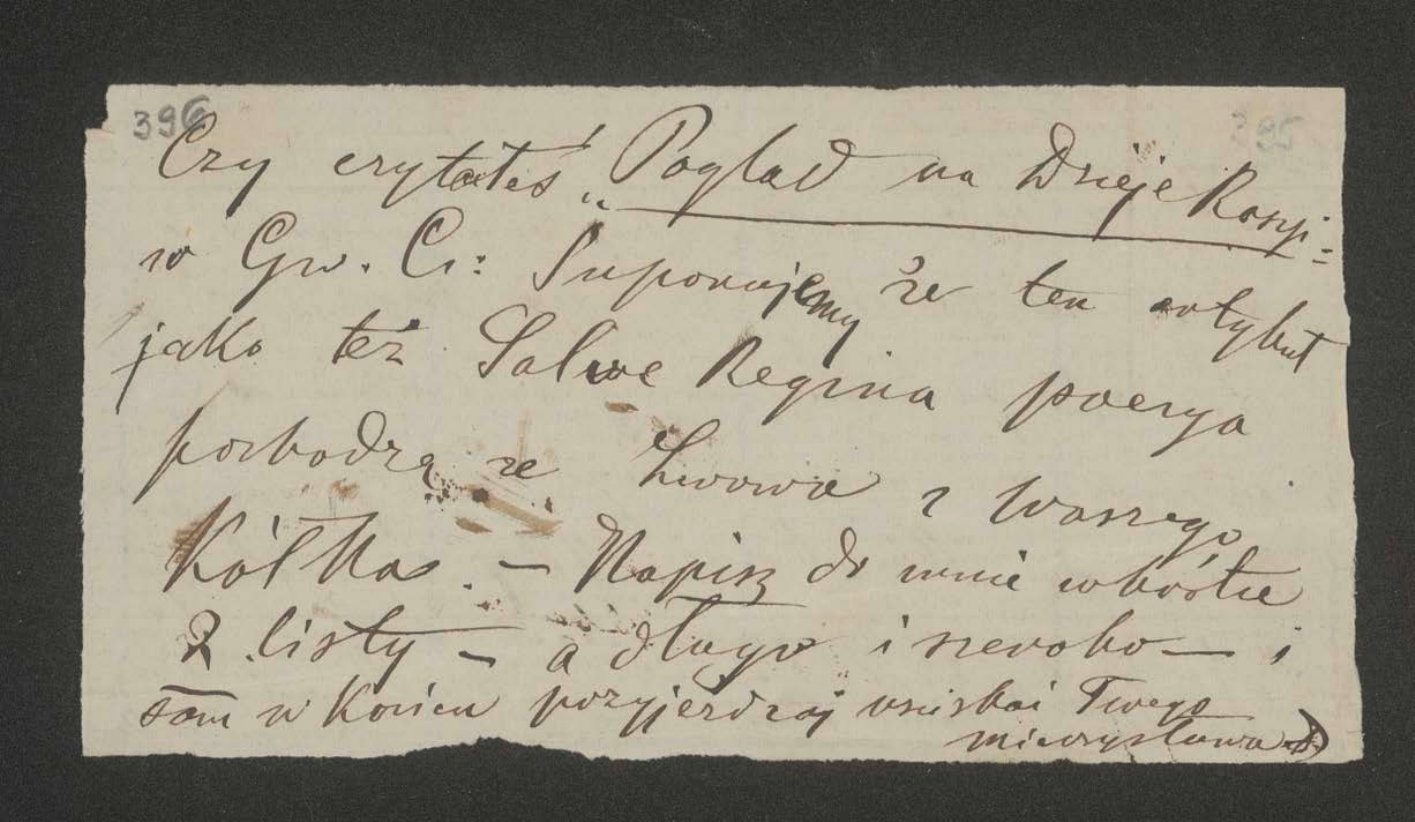 396 395
Czy czytałeś „Pogląd na Dzieje Rosyi=
w Gw. Ci: Suponujemy że ten artykuł
jako też Salwe Regina poezya
pochodzą ze Lwowa z Waszego
Kółka. – Napisz do mnie wkrótce
2 listy – a długo i szeroko – i
sam w Końcu przyjeżdżaj uściskać Twego
Mieczysława